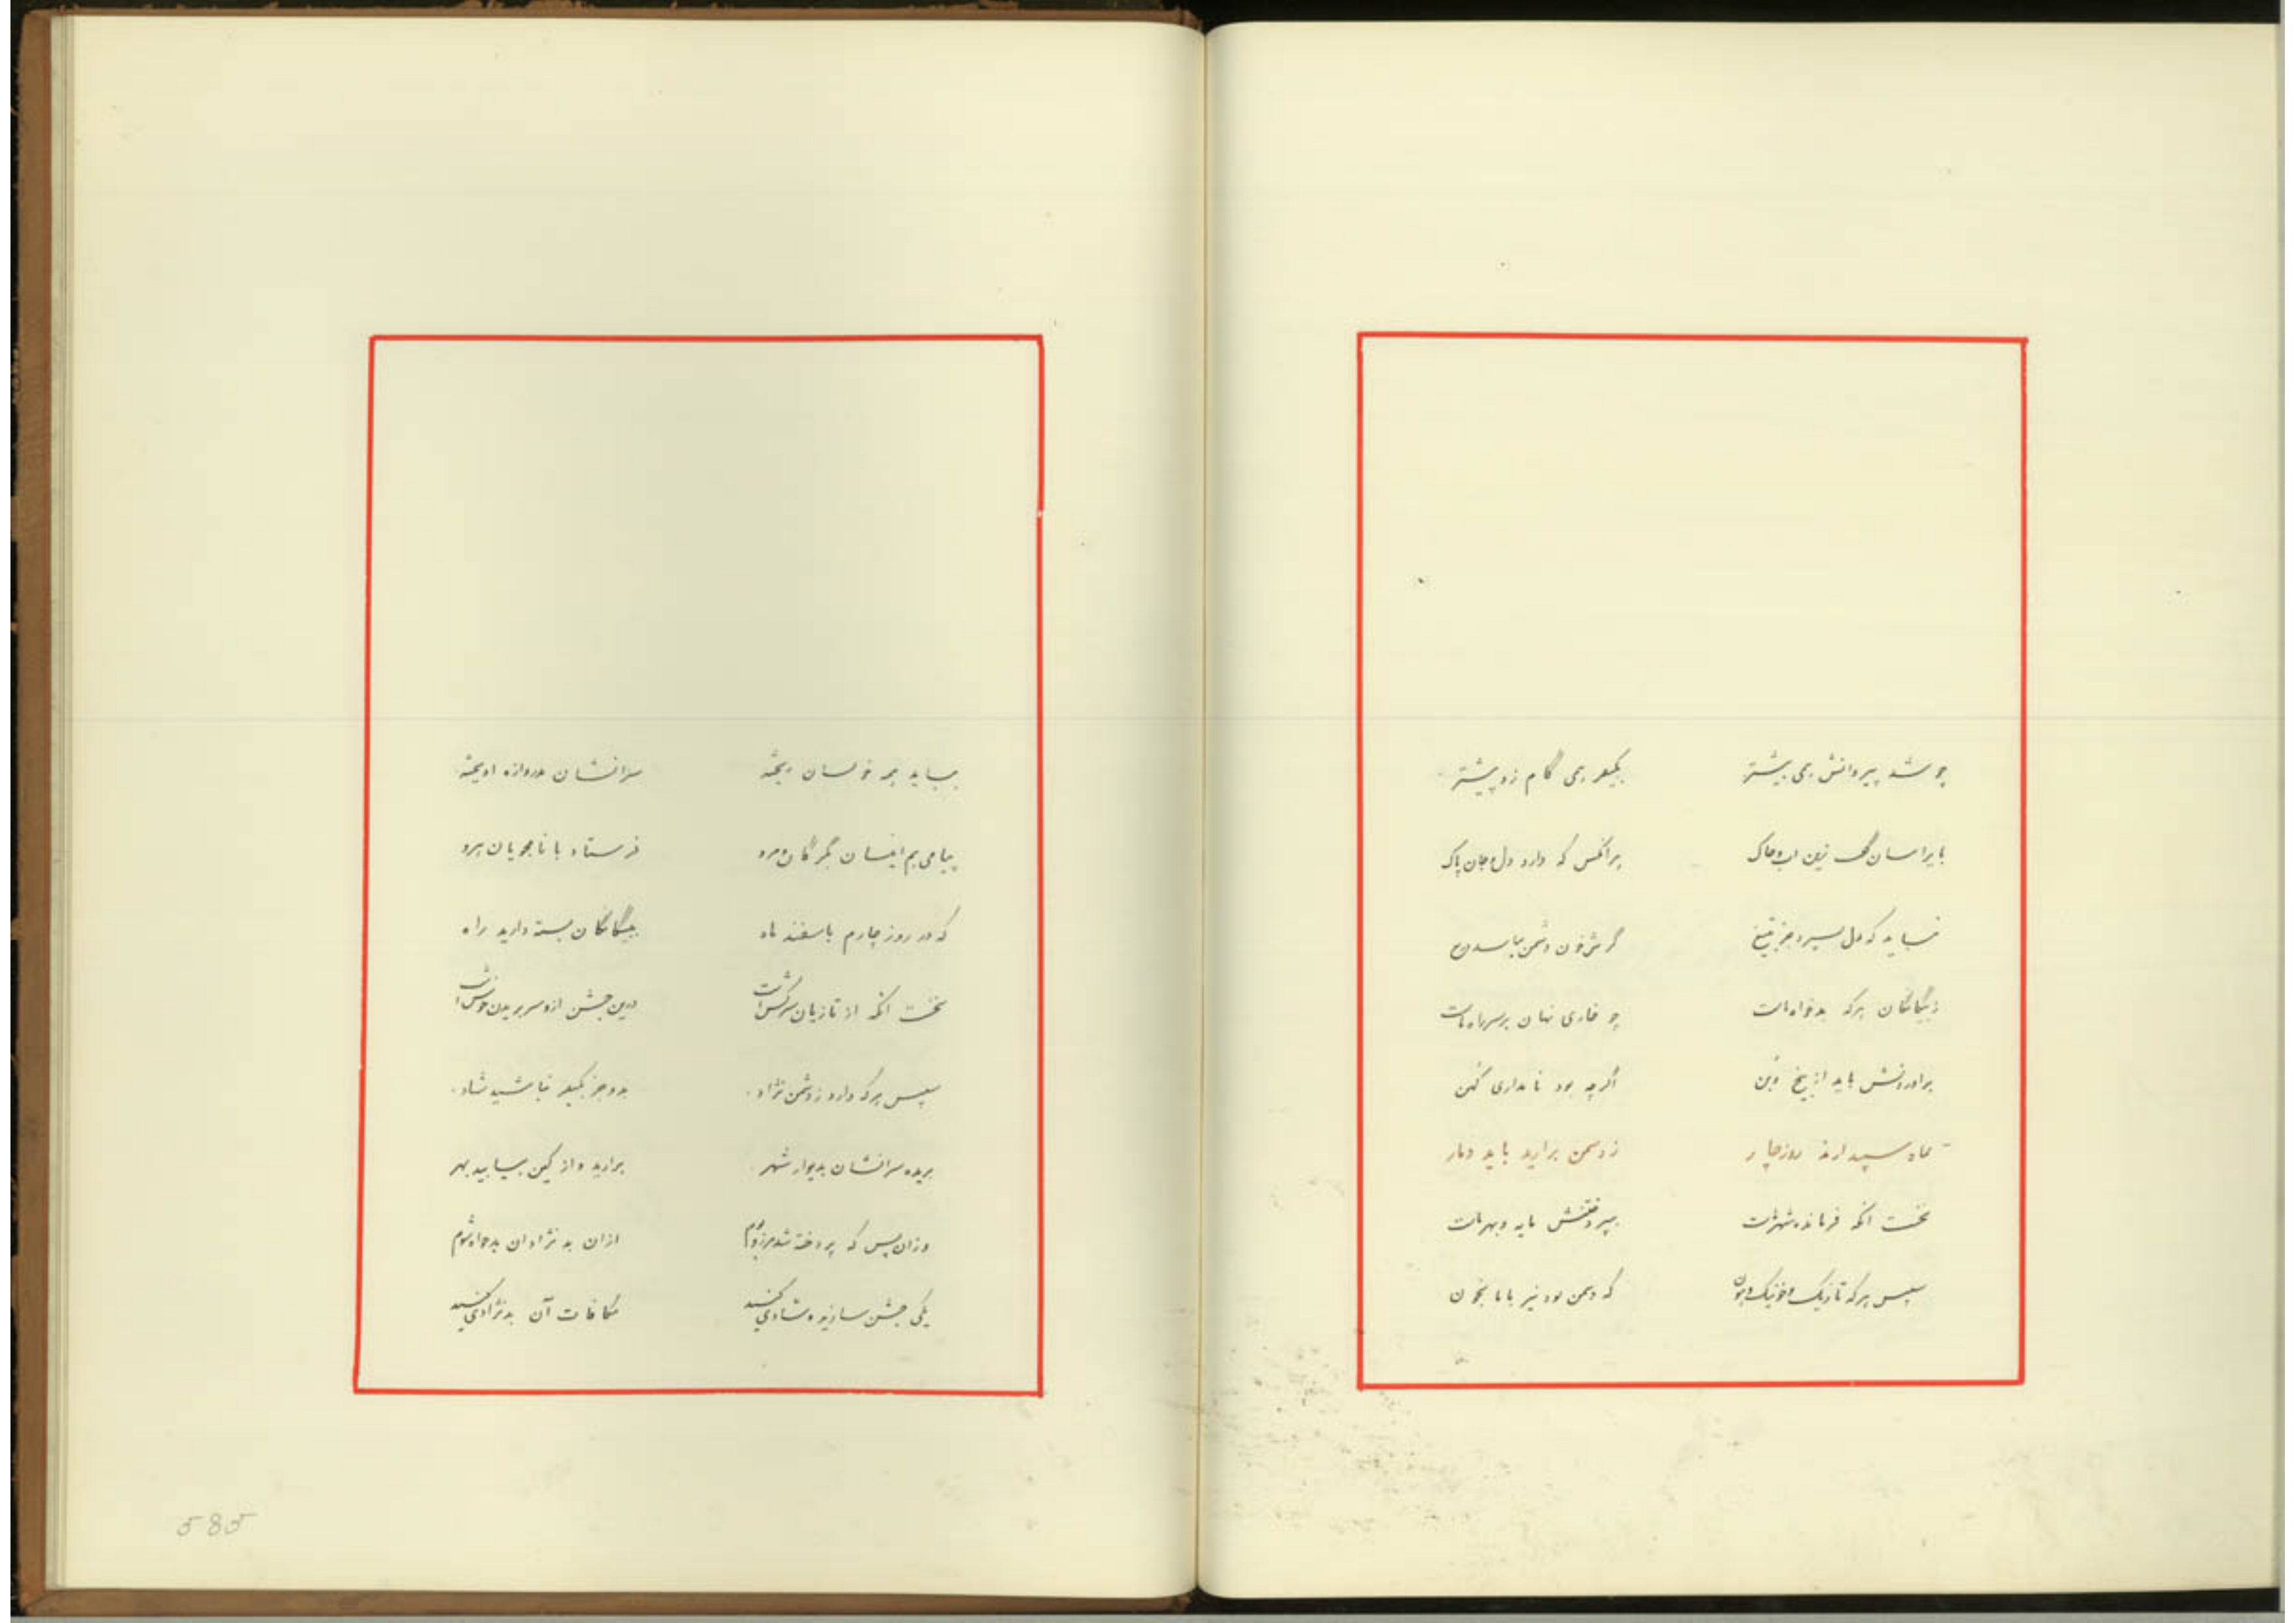 چو شد پیروانش همی بیشتر بکیفر همی گام زد پیشتر
بایرانیان گفت زین آب و خاک هرآنکس که دارد دل و جان پاک
نباید که دل بسپرد جز بتیغ گرش خون دشمن
ز بیگانگان هرکه بدخواه ماست چو خاری نهان بر سر راه ماست
برآوردنش باید از بیخ و بن اگرچه بود نامداری کهن
بماه سپندارمذ روز چار ز دشمن برآرید باید دمار
نخست آنکه فرمانده شهر ماست مایه و بهر ماست
سپس هرکه تازیک و بخون
بباید همه خونشان ریخته سرانشان بدروازه آویخته
پیامی هم اینسان بگرگان و مرو فرستاد با نامجویان
که در روز چارم باسفند ماه به بیگانگان بسته دارید راه
نخست آنکه از تازیان سرکش است درین جشن ازو سر بریدن خوش است
سپس هرکه دارد ز دشمن نژاد بدو جز بکیفر نباشید شاد
بریده سرانشان بدیوار شهر برآرید و از کین بیابید بهر
وزان پس که پردخته شد مرز و بوم ازان بدنژادان بدخواه شوم
یکی جشن سازید و شادی کنید مکافات آن بدنژادی کنید
585